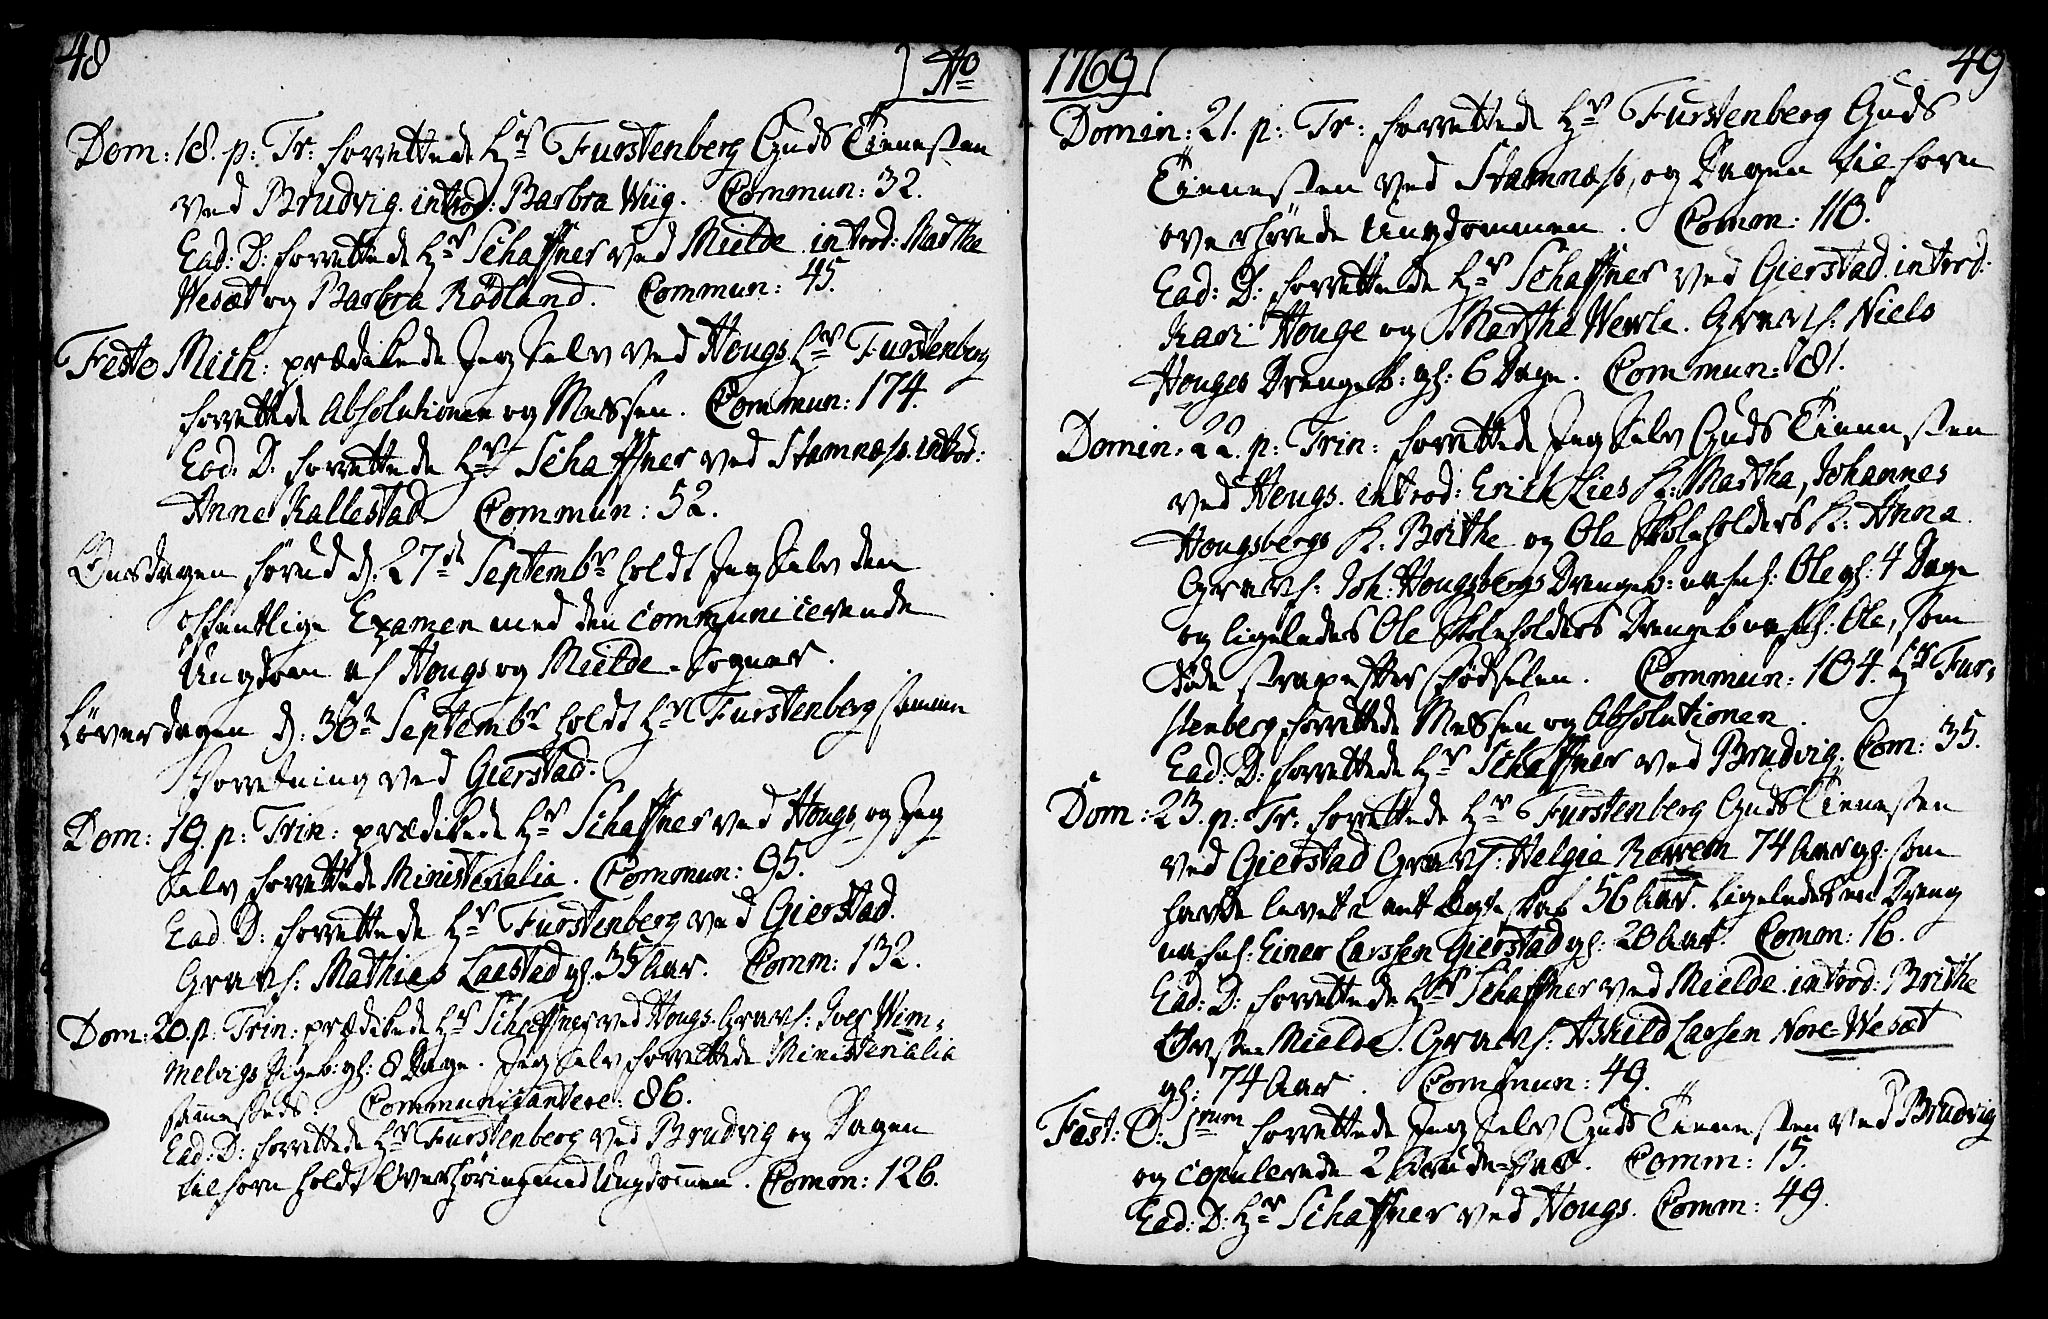 48 Ao
Dom: 18. p: Tr: forrettede Hr Furstenberg Guds Tienesten
ved Brudvig. introd: Barbra Wiig. Commun: 32.
Ead: D: forrettede Hr Schaffner ved Mielde introd: Marthe
Wesæt og Barbra Rødland. Commun: 45.
Festo Mich: prædikede Jeg Selv ved Hougs. Hr Furstenberg
forrettede Absolutionen og Messen. Commun: 174.
Ead: D: forrettede Hr Schaffner ved Stamnæss. introd:
Anne Kallestad. Commun: 52.
Onsdagen forud d: 27de Septembr holdt Jeg Selv den
offentlige Examen med den communicerende
Ungdom af Hougs og Mielde-Sogner.
Løverdagen d: 30te Septembr holdt Hr Furstenberg samme
Forretning ved Gierstad.
Dom: 19. p: Trin: prædikede Hr Schaffner ved Hougs, og Jeg
Selv forrettede Ministerialia. Commun: 95.
Ead. D: forrettede Hr Furstenberg ved Gierstad.
Gravf: Mathies Laestad gl: 35 Aar. Comm: 132.
Dom: 20. p: Trin: prædikede Hr Schaffner ved Hougs. Gravf: Iver Wim-
melvigs Pigeb: gl: 8 Dage. Jeg Selv forrettede Ministerialia
sammesteds. Communicantere: 86.
Ead: D: forrettede Hr Furstenberg ved Brudvig og Dagen
tilforn holdt Overhøring med Ungdommen. Comm: 126.
1769 49
Domin: 21. p: Tr: forrettede Hr Furstenberg Guds
Tienesten ved Stamnæss, og Dagen tilforn
overhørede Ungdommen. Comm: 110.
Ead: D: forrettede Hr Schaffner ved Gierstad. introd:
Kari Houge og Marthe Wevle. Gravf: Niels
Houges Drengeb: gl: 6 Dage. Commun: 81.
Domin: 22. p: Trin: forrettede Jeg Selv Guds Tienesten
ved Hougs. introd: Erich Lies K: Martha, Johannes
Hougsbergs K: Brithe og Ole Skoleholders K: Anna.
Gravf: Joh: Hougsbergs Drengeb: nafnl: Ole gl: 4 Dage
og ligeledes Ole Skoleholders Drengeb nafnl: Ole, som
døde strax efter Fødselen. Commun: 104. Hr Fur-
stenberg forrettede Messen og Absolutionen.
Ead: D: forrettede Hr Schaffner ved Brudvig. Com: 35.
Dom: 23. p: Tr: forrettede Hr Furstenberg Guds Tienesten
ved Gierstad Gravf: Helgie Rovem 74 Aar gl: som
havde levet i ægteskab 56 Aar. ligeledes en Dreng
nafnl: Einer Larssen Gierstad gl: 20 Aar. Comm: 16.
Ead: D: forrettede Hr Schaffner ved Mielde. introd: Brithe
Øvste Mielde. Gravf: Askild Larsen Nore-Wesæt
gl: 74 Aar. Commun: 49.
Fest: O: Srum forrettede Jeg Selv Guds Tienesten ved Brudvig
og copulerede 2 Brude-Par. Comm: 15.
Ead: D: Hr Schaffner ved Hougs. Comm: 49.